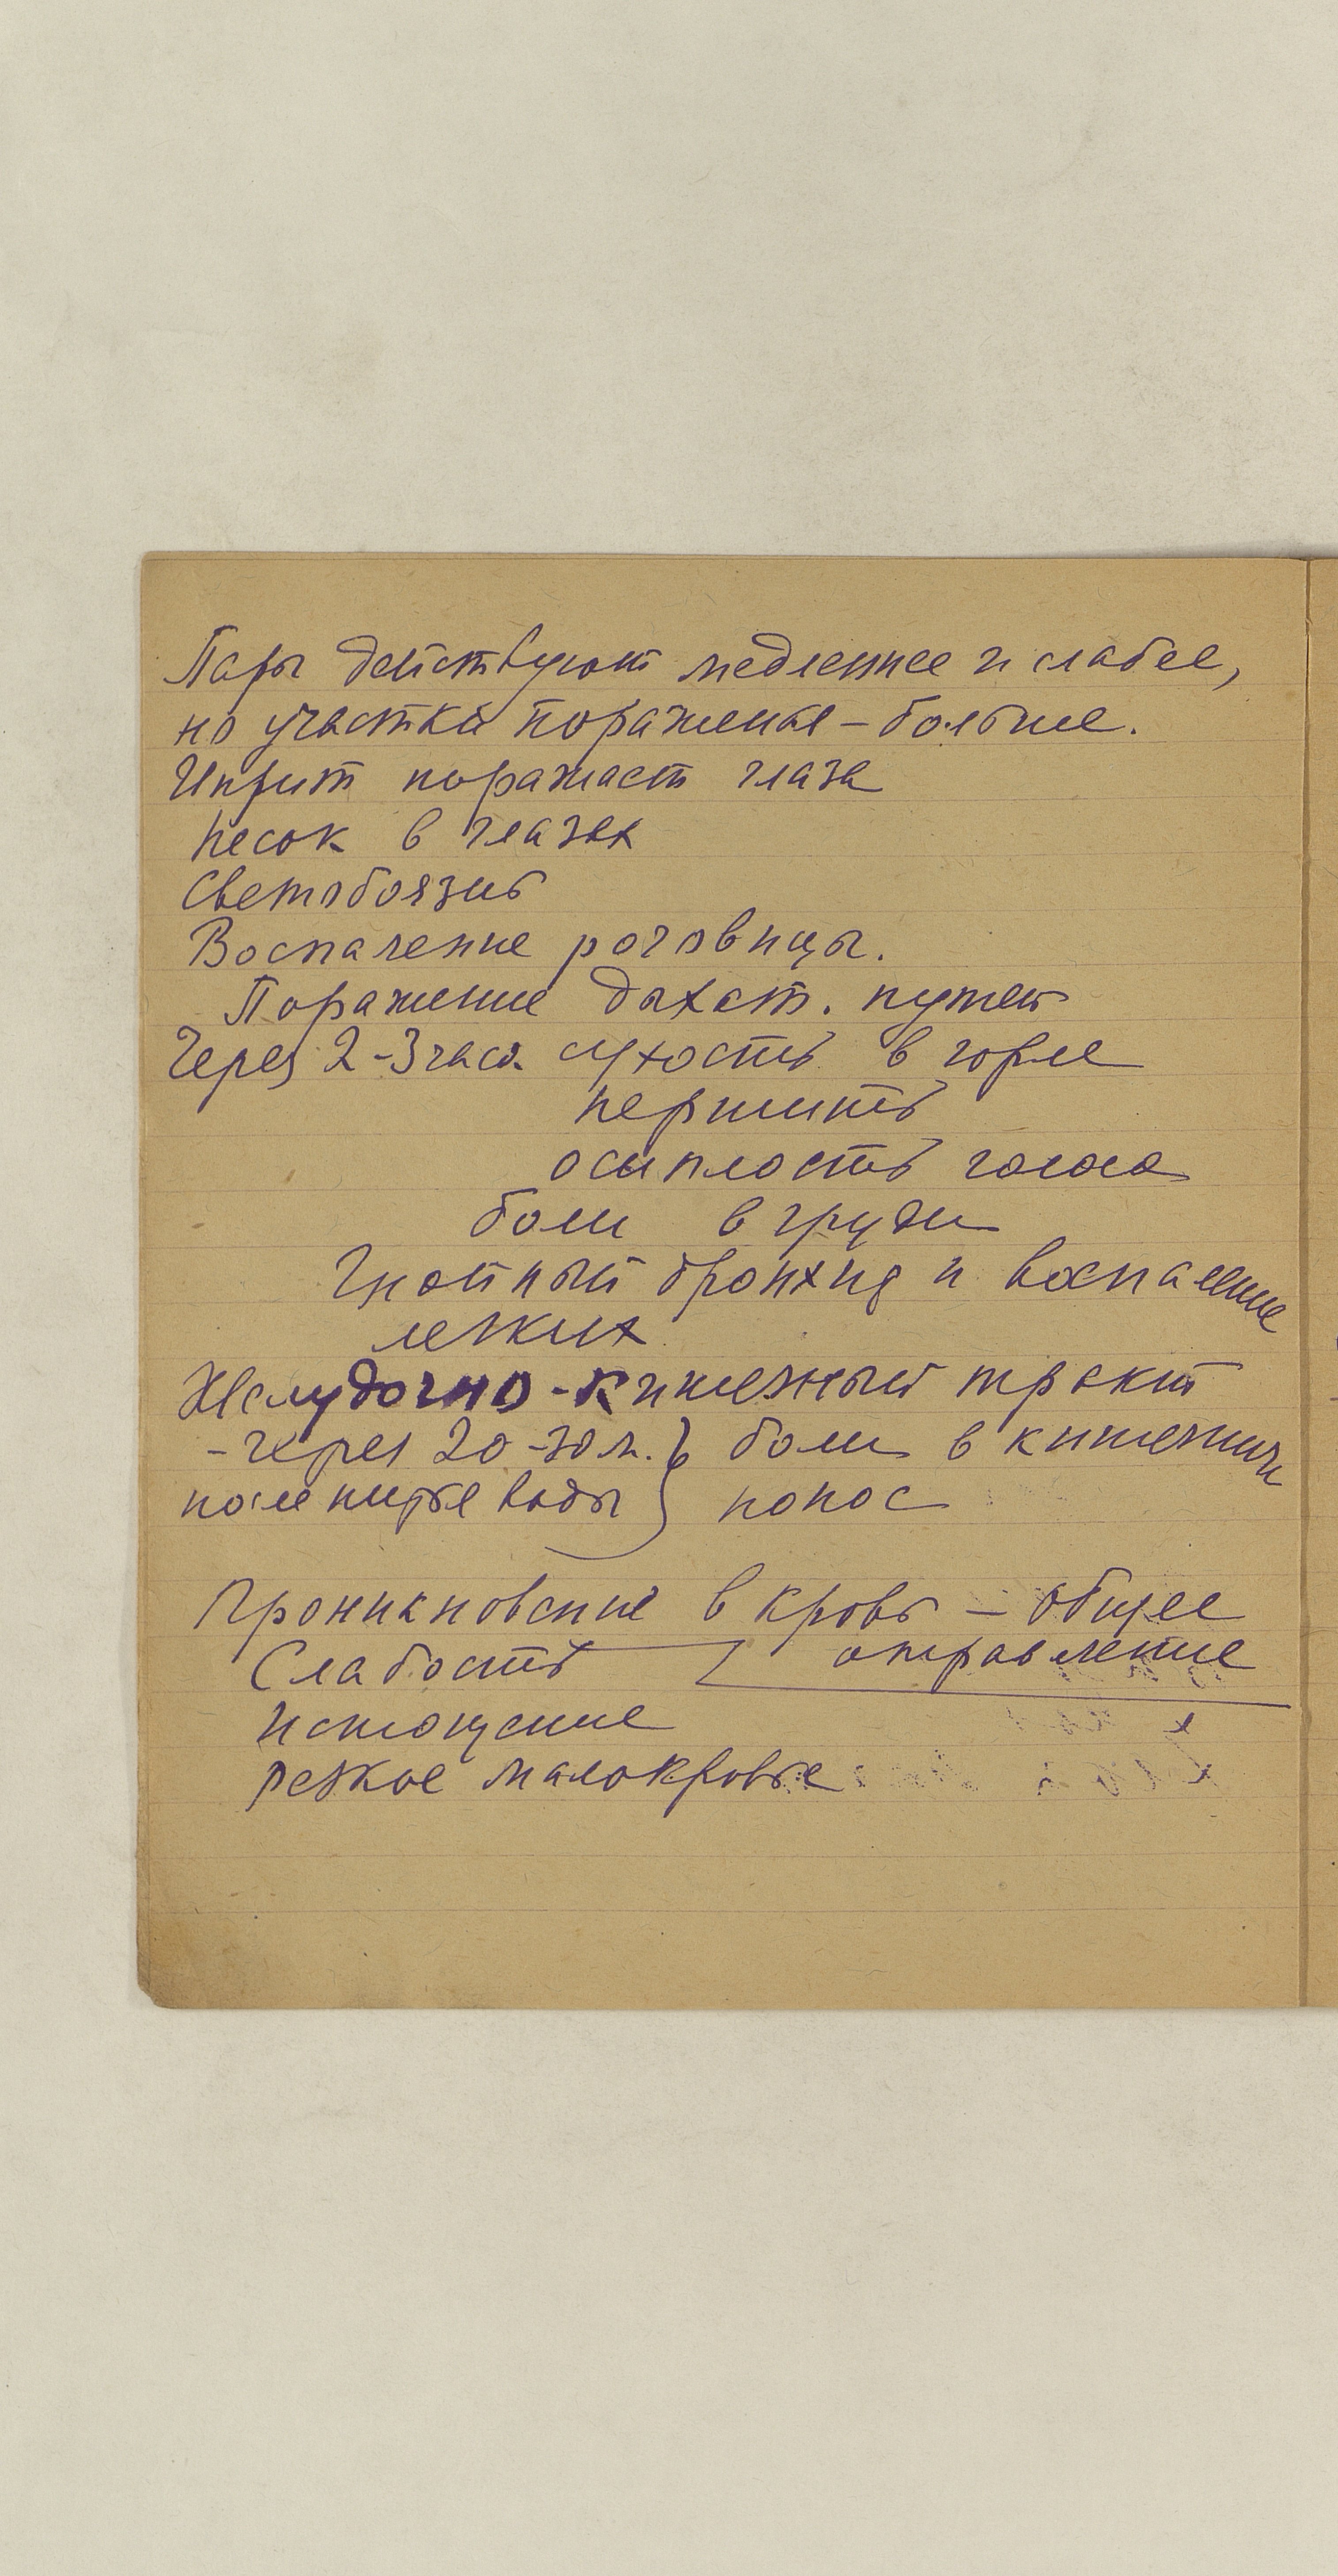 Пары действуют медленнее и слабее,
но участки пораженья – больше.
Иприт поражает глаза
песок в глазах
Светобоязнь
Воспаление роговицы.
Поражение дыхат. путей
Через 2-3 часа сухость в горле
першить
осиплость голоса
боли в груди
Гнойный бронхид и воспаление
легких
Желудочно-кишечный тракт
- через 20-30 м. } боли в кишечнике
после питья воды } понос
Проникновение в кровь – общее
отравление
Слабость
Истощение
резкое малокровье